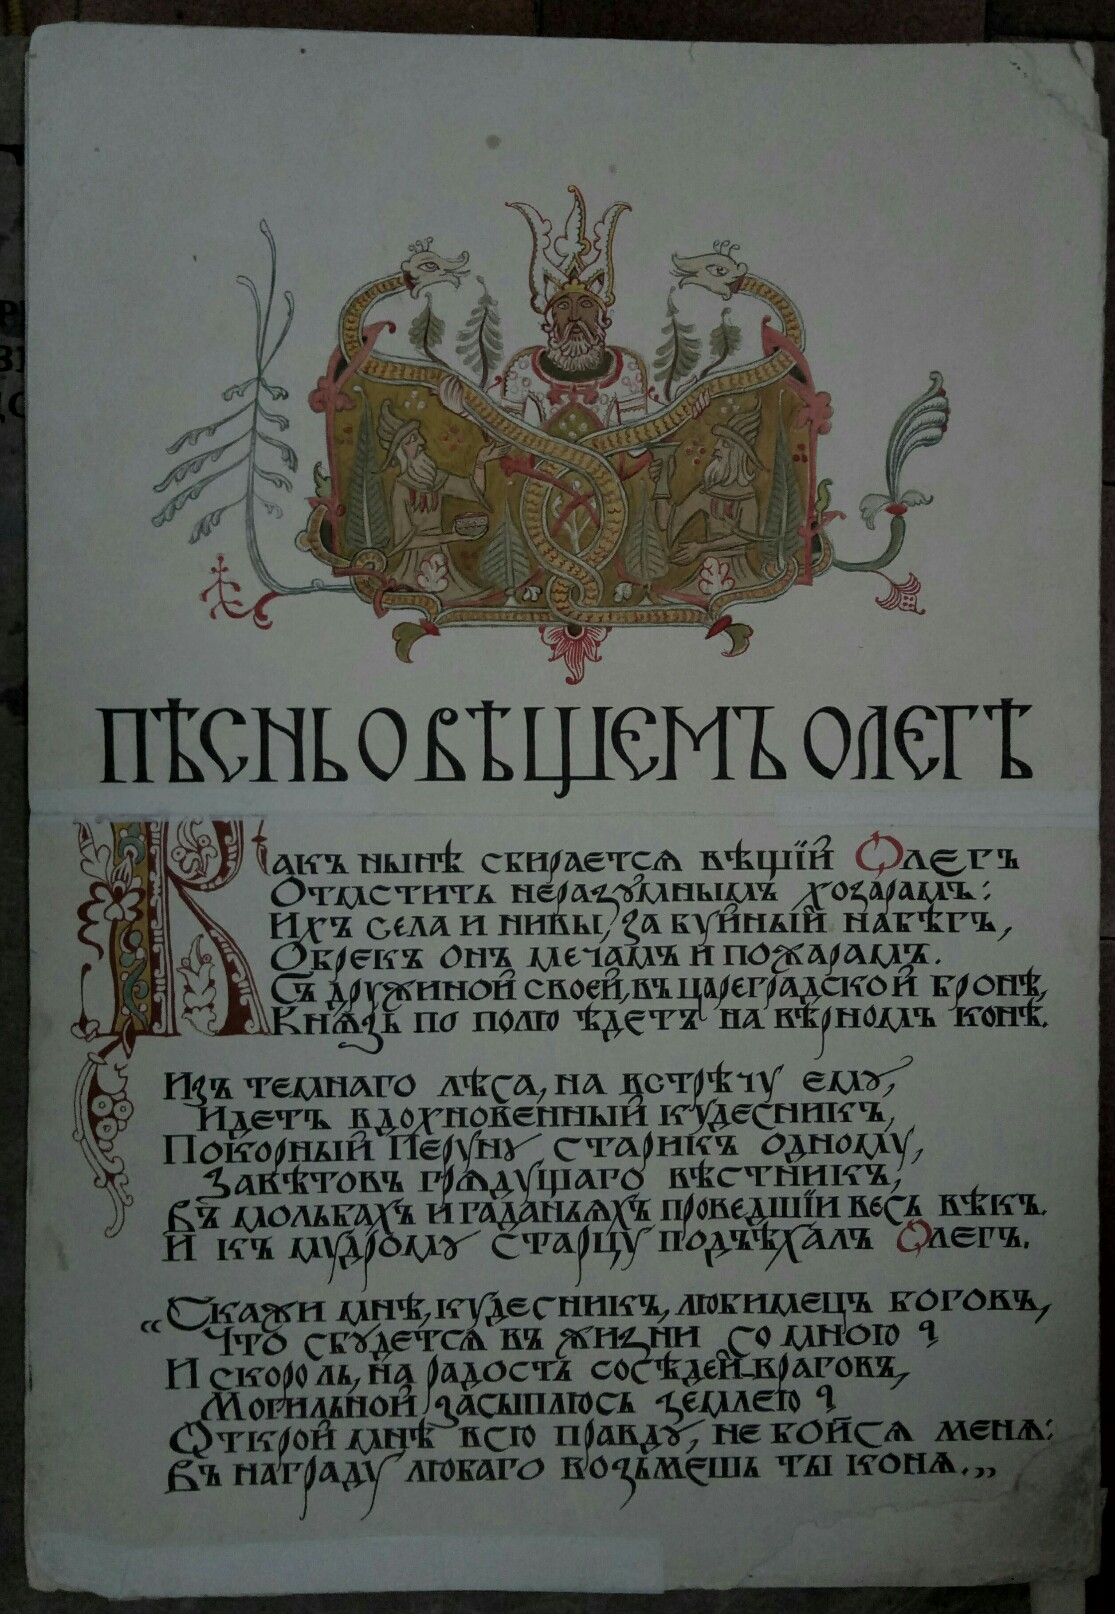 ПѢСНЬ О ВѢЩЕМЪ ОЛЕГѢ
Какъ нынѣ сбирается вѣщій Олегъ
Отмстить неразумнымъ хозарамъ:
Ихъ села и нивы, за буйный набѣгъ,
Обрекъ онъ мечамъ и пожарамъ.
Съ дружиной своей, въ цареградской бронѣ,
Князь по полю ѣдетъ на вѣрномъ конѣ.
Изъ темнаго лѣса, на встрѣчу ему,
Идетъ вдохновенный кудесникъ,
Покорный Перуну старикъ одному,
Завѣтовъ грядущаго вѣстникъ,
Въ мольбахъ и гаданьяхъ проведшій весь вѣкъ.
И къ мудрому старцу подъѣхалъ Олегъ.
„Скажи мнѣ, кудесникъ, любимецъ боговъ,
Что сбудется въ жизни со мною?
И скоро ль, на радость сосѣдей-враговъ,
Могильной засыплюсь землею?
Открой мнѣ всю правду, не бойся меня:
Въ награду любаго возьмешь ты коня."